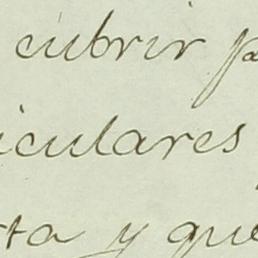 cubrir p
iculares
rta y que